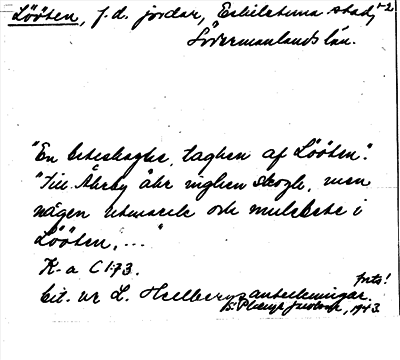 Lööten, f.d. jordar, Eskilstuna stad, +2
Södermanlands län.
"En beteshagke, taghen af Lööten".
"Till Åkrby åhr inghen skogh, men
någen utmarck och mulebete i
Lööten, ..."
K.a C 173.
Cit. ur L. Hellbergs anteckningar. forts!
1943.